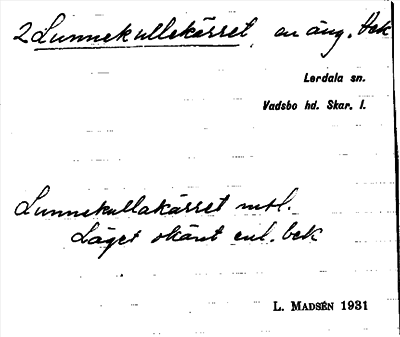 2 Lunnekullekärret, en äng. bek
Lerdala sn.
Vadsbo hd. Skar. l.
Lunnekullakärret mtl.
Läget okänt enl. bek
L. MADSÉN 1931